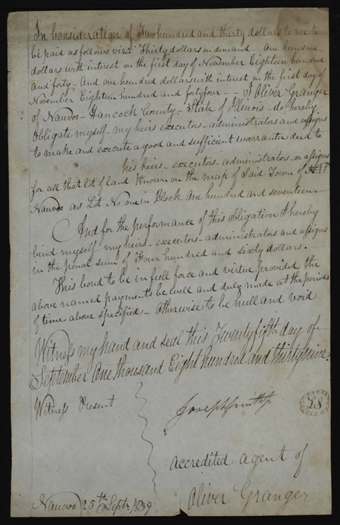 In consideration of Two hundred and thirty dollars to me to
be paid as follows viz: Thirty dollars on demand - one hundred
dollars with interest on the first day of November Eighteen hundred
and forty - and one hundred dollars with interest on the first day of
November Eighteen hundred and fortyfour - - I Oliver Granger
of Nauvoo - Hancock County - State of Illinois - do hereby
Obligate myself - my heirs executors - administrators and assigns
to make and execute a good and sufficient warrantee deed to
his heirs - executors - administrators - or assigns
for all that lot of land Known on the map of said Town of
Nauvoo as Lot No one in Block one hundred and seventeen
And for the performance of this obligation I hereby
bind myself - my heirs - executors - administrators and assigns
in the penal sum of Four hundred and sixty dollars.
This bond to be in full force and virtue provided the
above named payments be well and duly made at the periods
of time above specified - otherwise to be null and void
Witness my hand and seal this Twentyfifth day of
September One thousand Eight hundred and thirty nine
Witness Present
Joseph Smith Jr
accredited agent of
Oliver Granger
Nauvoo 25th Septr 1839